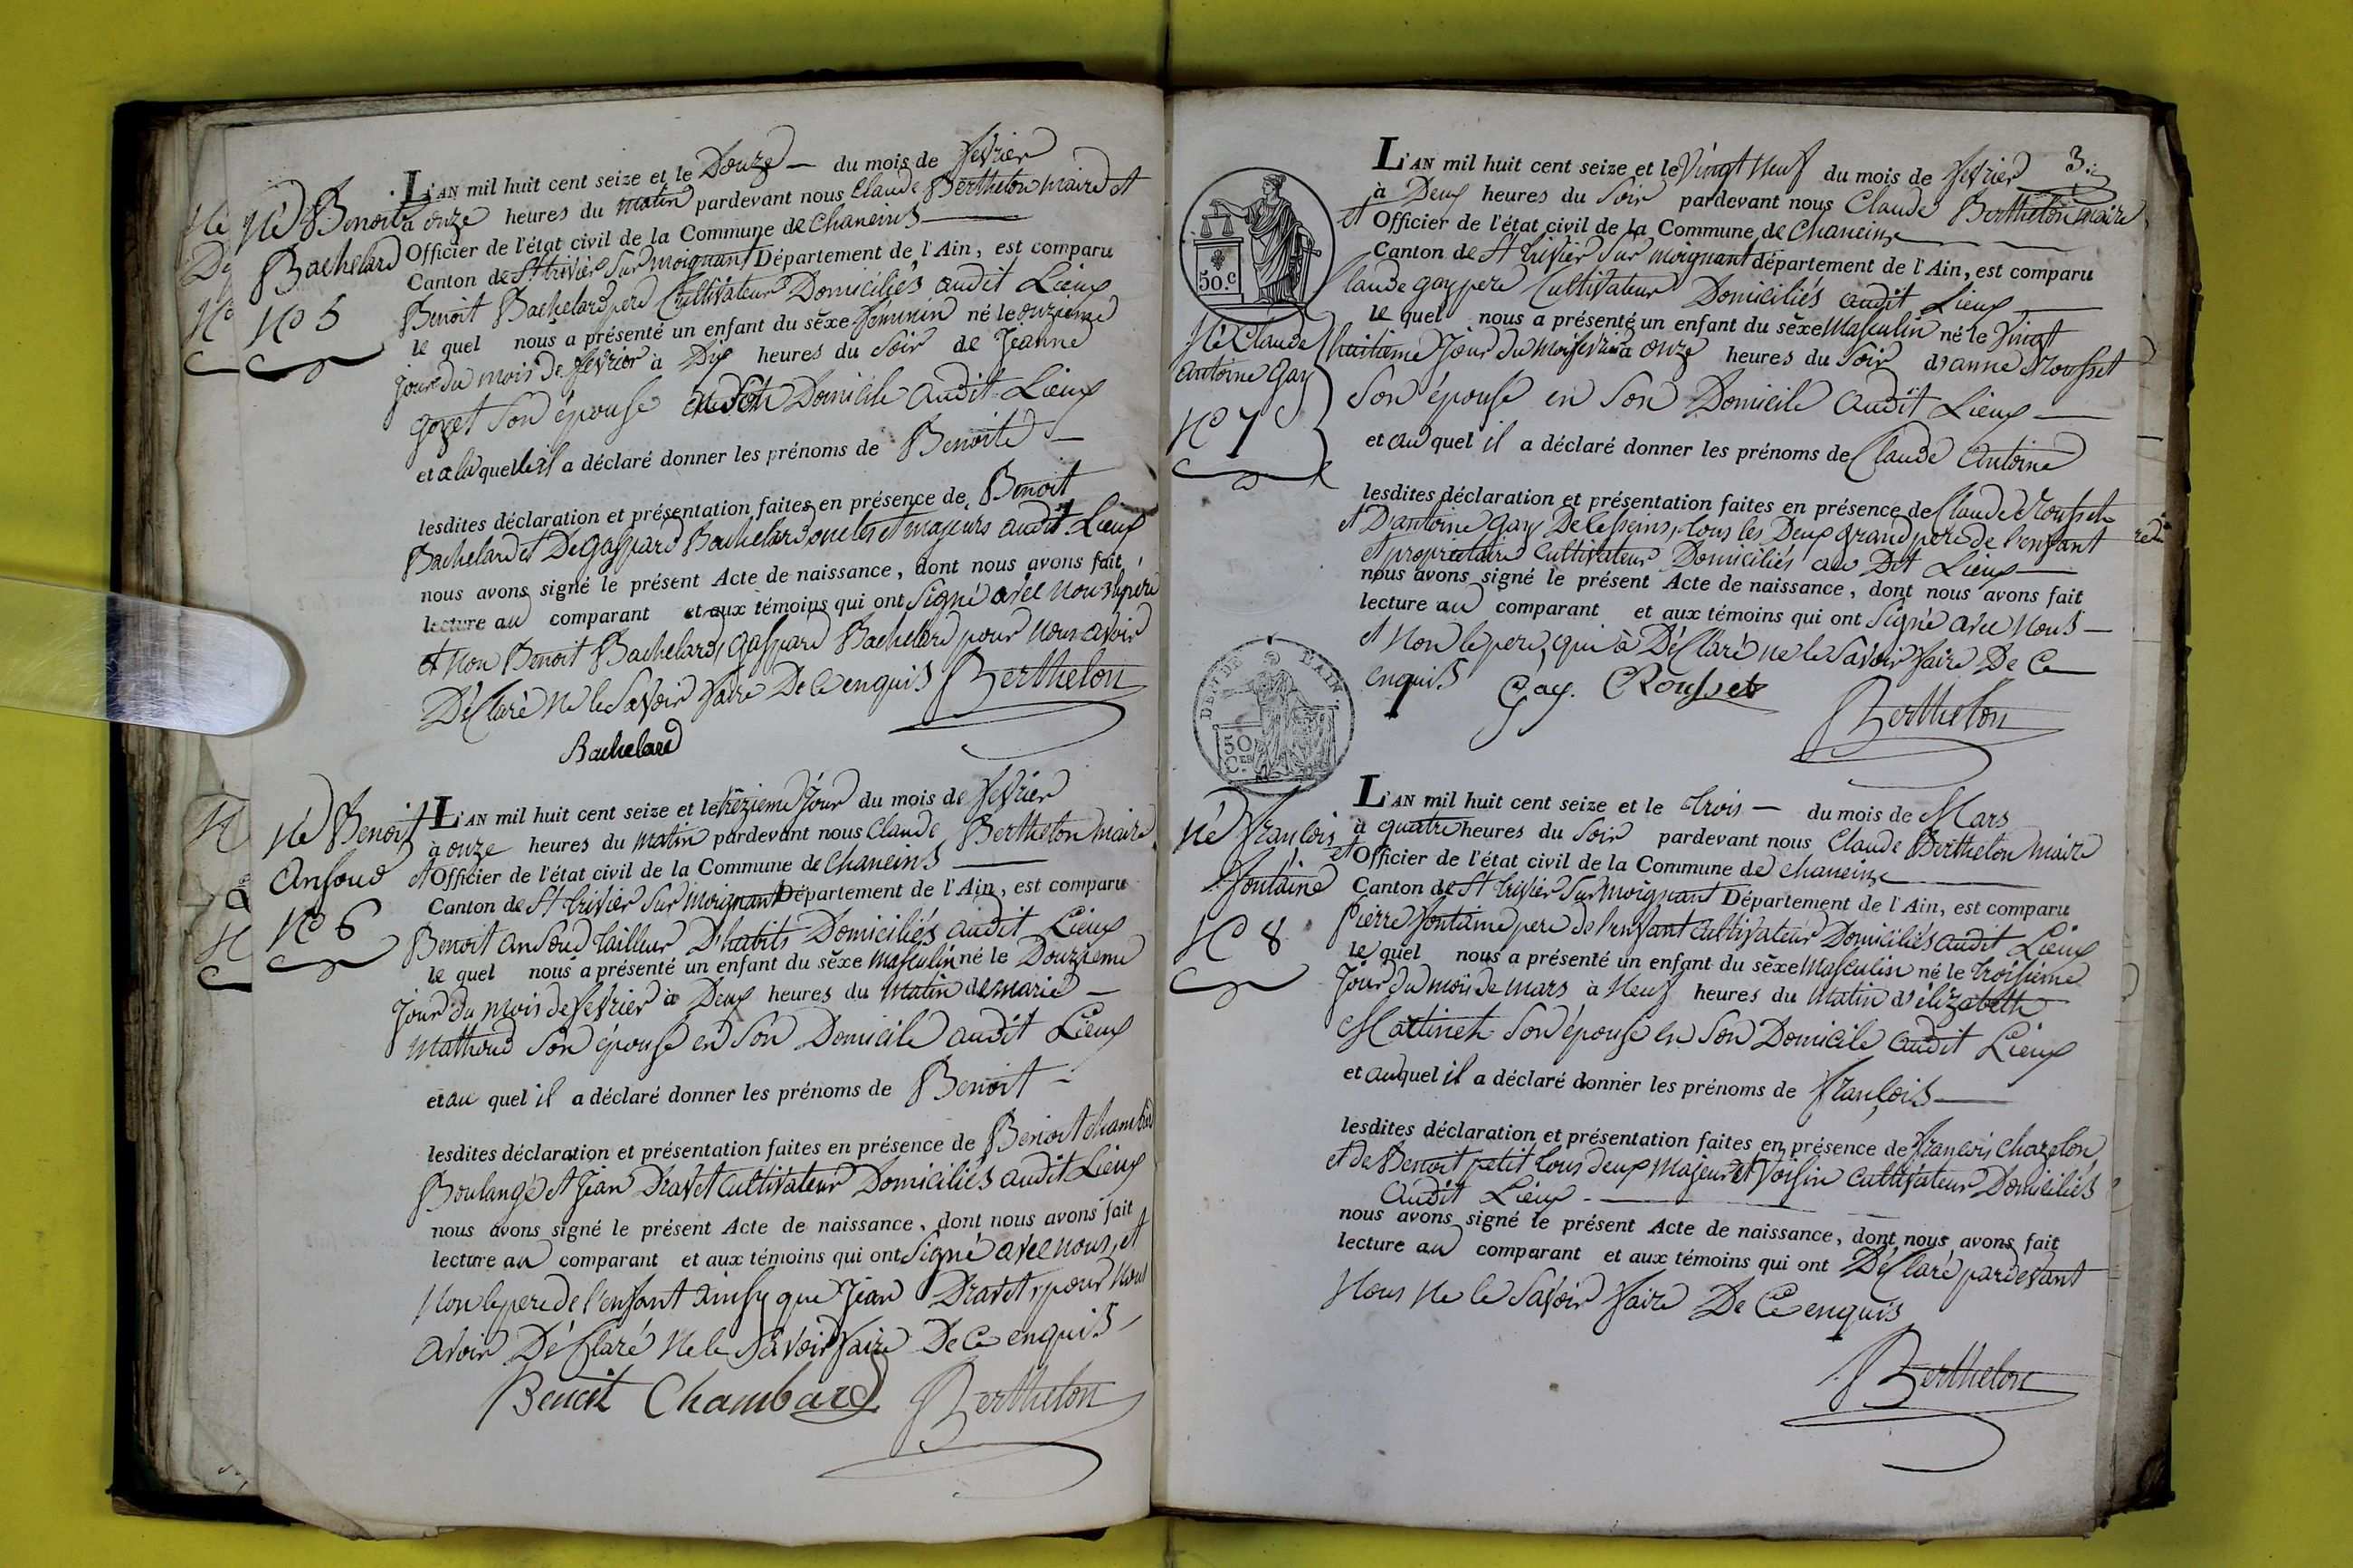 Né Benoite
Bachelard
No 5
L'AN mil huit cent seize et le Douze — du mois de fevrier
à onze heures du matin pardevant nous Claude Berthelon maire et
Officier de l'état civil de la Commune de Chaneins
Canton de St trivier Sur moignant Département de l'Ain, est comparu
Benoit Bachelard pere Cultivateur Domiciliés audit Lieux
le quel nous a présenté un enfant du sêxe feminin né le onzieme
jour du mois de fevrier à Dix heures du Soir de Jeanne
gozet Son épouse en Son Domicile audit Lieux
et a la quelle il a déclaré donner les prénoms de Benoite —
lesdites déclaration et présentation faites en présence de Benoit
Bachelard et De gaspard Bachelard oncles et majeurs audit Lieux
nous avons signé le présent Acte de naissance, dont nous avons fait
lecture au comparant et aux témoins qui ont Signé avec nous le pere
et Non Benoit Bachelard, gaspard Bachelard pour nous avoir
Déclaré Ne le Savoir faire De Ce enquis Berthelon
Bachelard
Né Benoit
Ansoud
No 6
L'AN mil huit cent seize et le trêzieme Jour du mois de fevrier
à onze heures du matin pardevant nous Claude Berthelon maire
et Officier de l'état civil de la Commune de Chaneins
Canton de St trivier Sur moignant Département de l'Ain, est comparu
Benoit ansoud tailleur D'habits Domiciliés audit Lieux
le quel nous a présenté un enfant du sêxe masculin né le Douzieme
Jour du mois de fevrier à Deux heures du matin de marie —
mathoud Son épouse en Son Domicile audit Lieux
et au quel il a déclaré donner les prénoms de Benoit —
lesdites déclaration et présentation faites en présence de Benoit chambard
Boulangé et Jean Dravet Cultivateur Domiciliés audit Lieux
nous avons signé le présent Acte de naissance, dont nous avons fait
lecture au comparant et aux témoins qui ont Signé avec nous, et
Non le pere de l'enfant ainsy que Jean Dravet, pour Nous
avoir Déclaré Ne le Savoir faire De Ce enquis
Benoit Chambard Berthelon
3
50.c
Né Claude
antoine Gay
No 7
L'AN mil huit cent seize et le Vingt Neuf du mois de fevrier
à Deux heures du Soir pardevant nous Claude Berthelon maire
et Officier de l'état civil de la Commune de Chaneins
Canton de St trivier Sur moignant département de l'Ain, est comparu
Claude gay pere Cultivateur Domiciliés audit Lieux
le quel nous a présenté un enfant du sêxe Masculin né le Vingt
huitieme Jour du mois fevrier à onze heures du Soir d'anne Rousset
Son épouse en Son Domicile audit Lieux —
et au quel il a déclaré donner les prénoms de Claude Antoine
lesdites déclaration et présentation faites en présence de Claude Rousset
et D'antoine Gay De lesseins, tous les Deux grand pere de l'enfant
et propriétaire Cultivateur Domiciliés au Dit Lieux
nous avons signé le présent Acte de naissance, dont nous avons fait
lecture au comparant et aux témoins qui ont Signé avec Nous —
et Non le pere, qui à Déclaré ne le Savoir faire De Ce
enquis Gay. Rousset
Berthelon
DEP. DE L'AIN.
50
Né françois
fontaine
No 8
L'AN mil huit cent seize et le trois — du mois de Mars
à quatre heures du Soir pardevant nous Claude Berthelon maire
et Officier de l'état civil de la Commune de Chaneins
Canton de St trivier Sur moignant Département de l'Ain, est comparu
Pierre fontaine pere de l'enfant Cultivateur Domiciliés audit Lieux
le quel nous a présenté un enfant du sêxe Masculin né le troisieme
Jour du mois de mars à Neuf heures du Matin d'élizabeth
Martinet Son épouse en Son Domicile audit Lieux
et au quel il a déclaré donner les prénoms de françois —
lesdites déclaration et présentation faites en présence de françois Chazelon
et de Benoit petit tous deux Majeur et Voisin Cultivateur Domiciliés
audit Lieux
nous avons signé le présent Acte de naissance, dont nous avons fait
lecture au comparant et aux témoins qui ont Déclaré pardevant
Nous Ne le Savoir faire De Ce enquis
Berthelon